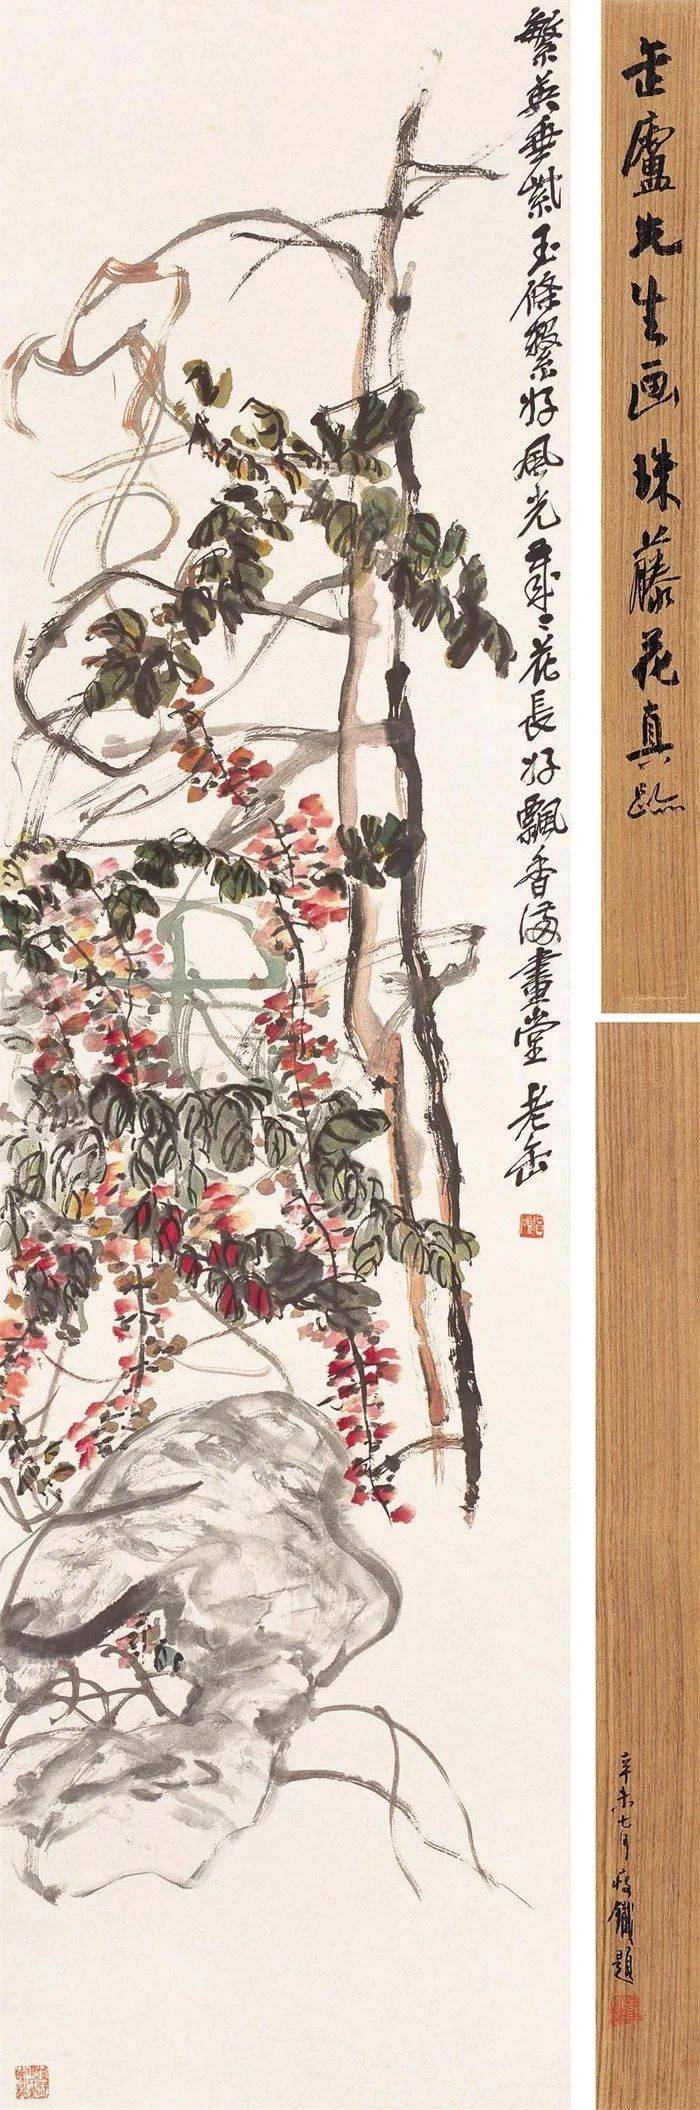 缶廬先生画珠藤花真跡
辛未七月瘦鐵題
繁英垂紫玉條繫好風光歲〻花長好飄香滿畫堂 老缶